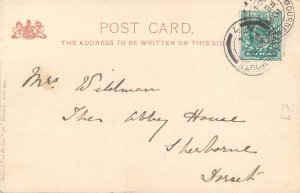 POST CARD.
THE ADDRESS TO BE WRITTEN ON THIS SIDE
Mrs Wildman
The Abbey House
Sherborne
Dorset